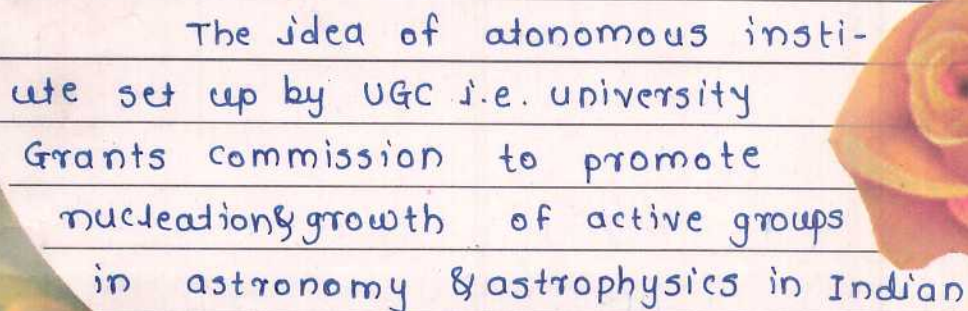 The idea of atonomous insti-
ute set up by UGC i.e. university
Grants commission to promote
nucleation & growth of active groups
in astronomy & astrophysics in Indian